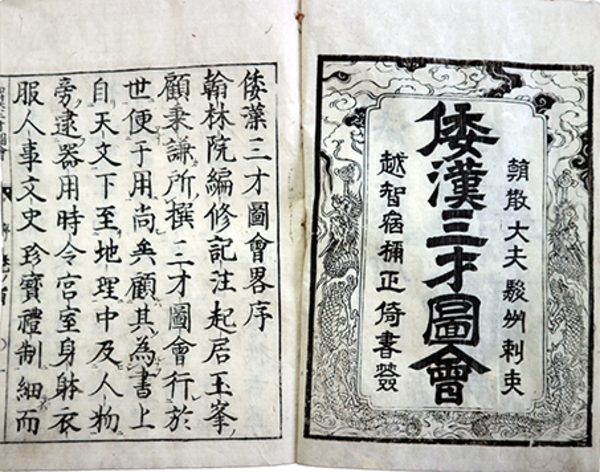 朝散大夫駿州刺史
倭漢三才圖會
越智宿禰正倚書
倭漢三才圖會畧序
翰林院編修記注起居玉峯
顧秉謙所撰三才圖會行於
世便于用尚矣顧其為書上
自天文下至地理中及人物
旁逮器用時令宮室身躰衣
服人事文史珍寶禮制細而